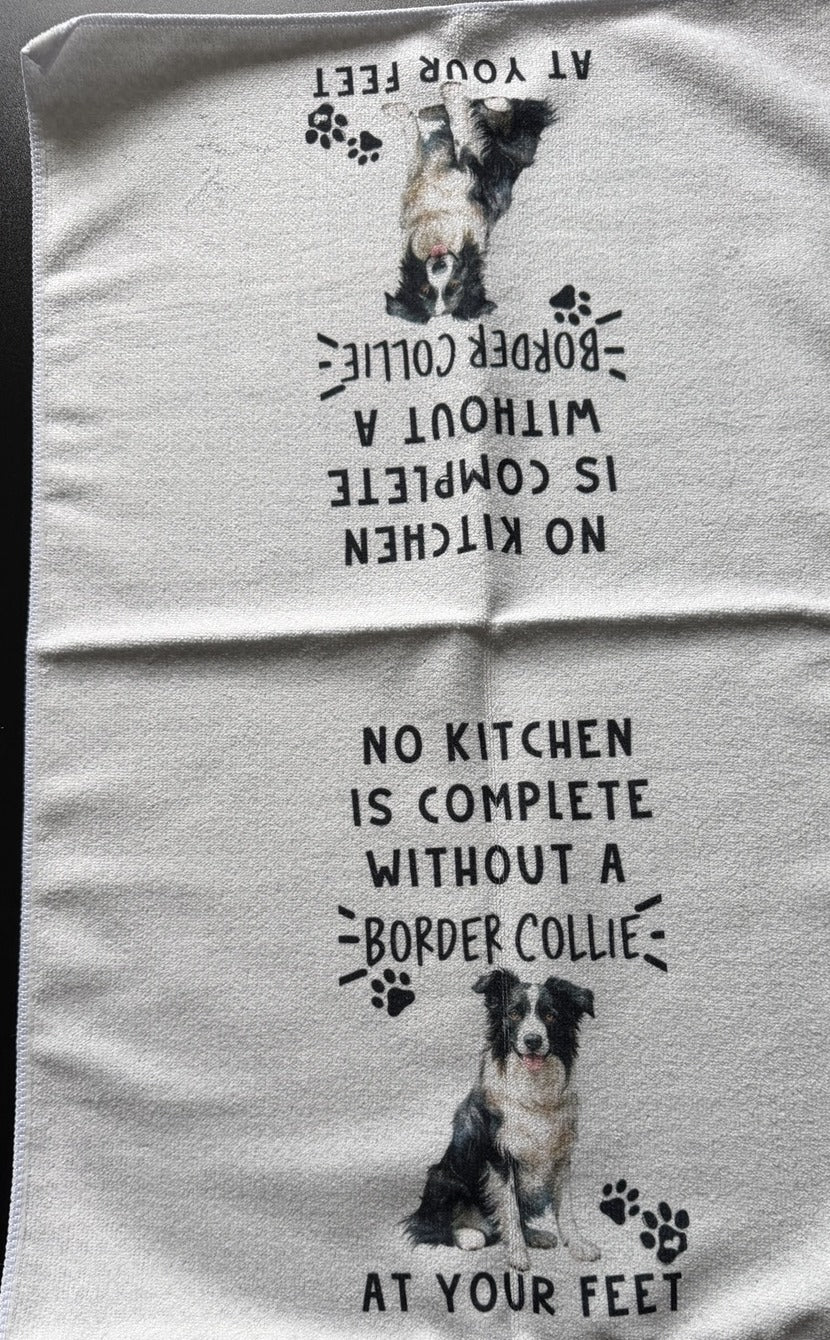 AT YOUR FEET
BORDER COLLIE
WITHOUT A
IS COMPLETE
NO KITCHEN
NO KITCHEN
IS COMPLETE
WITHOUT A
BORDER COLLIE
AT YOUR FEET